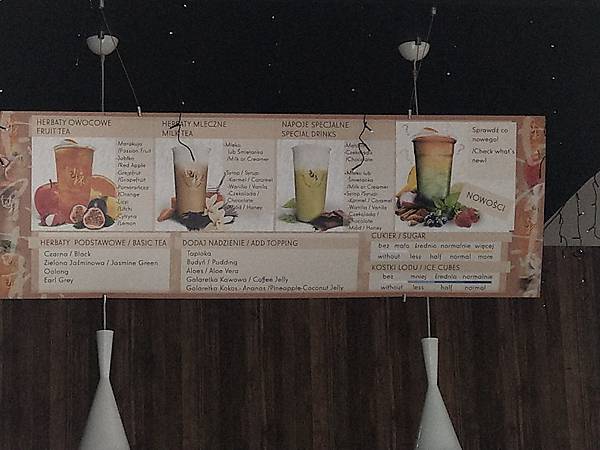 HERBATY OWOCOWE
FRUIT TEA
Marakuja
/Passion Fruit
Jabłko
/Red Apple
Grejpfrut
/Grapefruit
Pomarańcza
/Orange
Liczi
/Litchi
Cytryna
/Lemon
HERBATY MLECZNE
MILK TEA
Mleko
lub Śmietanka
/Milk or Creamer
Syrop / Syrup:
-Karmel / Caramel
-Wanilia / Vanila
-Czekolada /
Chocolate
Miód / Honey
NAPOJE SPECJALNE
SPECIAL DRINKS
/Chocolate
Mleko lub
Śmietanka
/Milk or Creamer
Syrop /Syrup:
-Karmel / Caramel
-Wanilia / Vanila
-Czekolada /
Chocolate
Miód / Honey
Sprawdź co
nowego!
/Check what's
new!
NOWOŚCI
HERBATY PODSTAWOWE / BASIC TEA
Czarna / Black
Zielona Jaśminowa / Jasmine Green
Oolong
Earl Grey
DODAJ NADZIENIE / ADD TOPPING
Tapioka
Budyń / Pudding
Aloes / Aloe Vera
Galaretka Kawowa / Coffee Jelly
Galaretka Kokos- Ananas /Pineapple-Coconut Jelly
CUKIER / SUGAR
bez mało średnio normalnie więcej
without less half normal more
KOSTKI LODU / ICE CUBES
bez mniej średnio normalnie
without less half normal